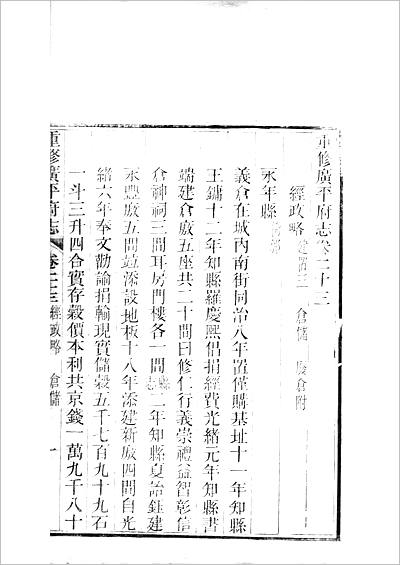 重修廣平府志卷二十三
經政略 倉儲 廢倉附
永年縣
義倉在城內南街同治八年置僅購基址十一年知縣
王鏞十二年知縣羅慶熙倡捐經費光緒元年知縣書
端建倉廒五座共二十間曰修仁行義崇禮益智彰信
倉神祠三間耳房門樓各一間 二年知縣夏詒鈺建
永豐廒五間竝添設地板十八年添建新廒四間自光
緒六年奉文勸諭捐輸現實儲穀五千七百九十九石
一斗三升四合實存穀價本利共京錢一萬九千八十
重修廣平府志 卷二十三 經政略 倉儲 一